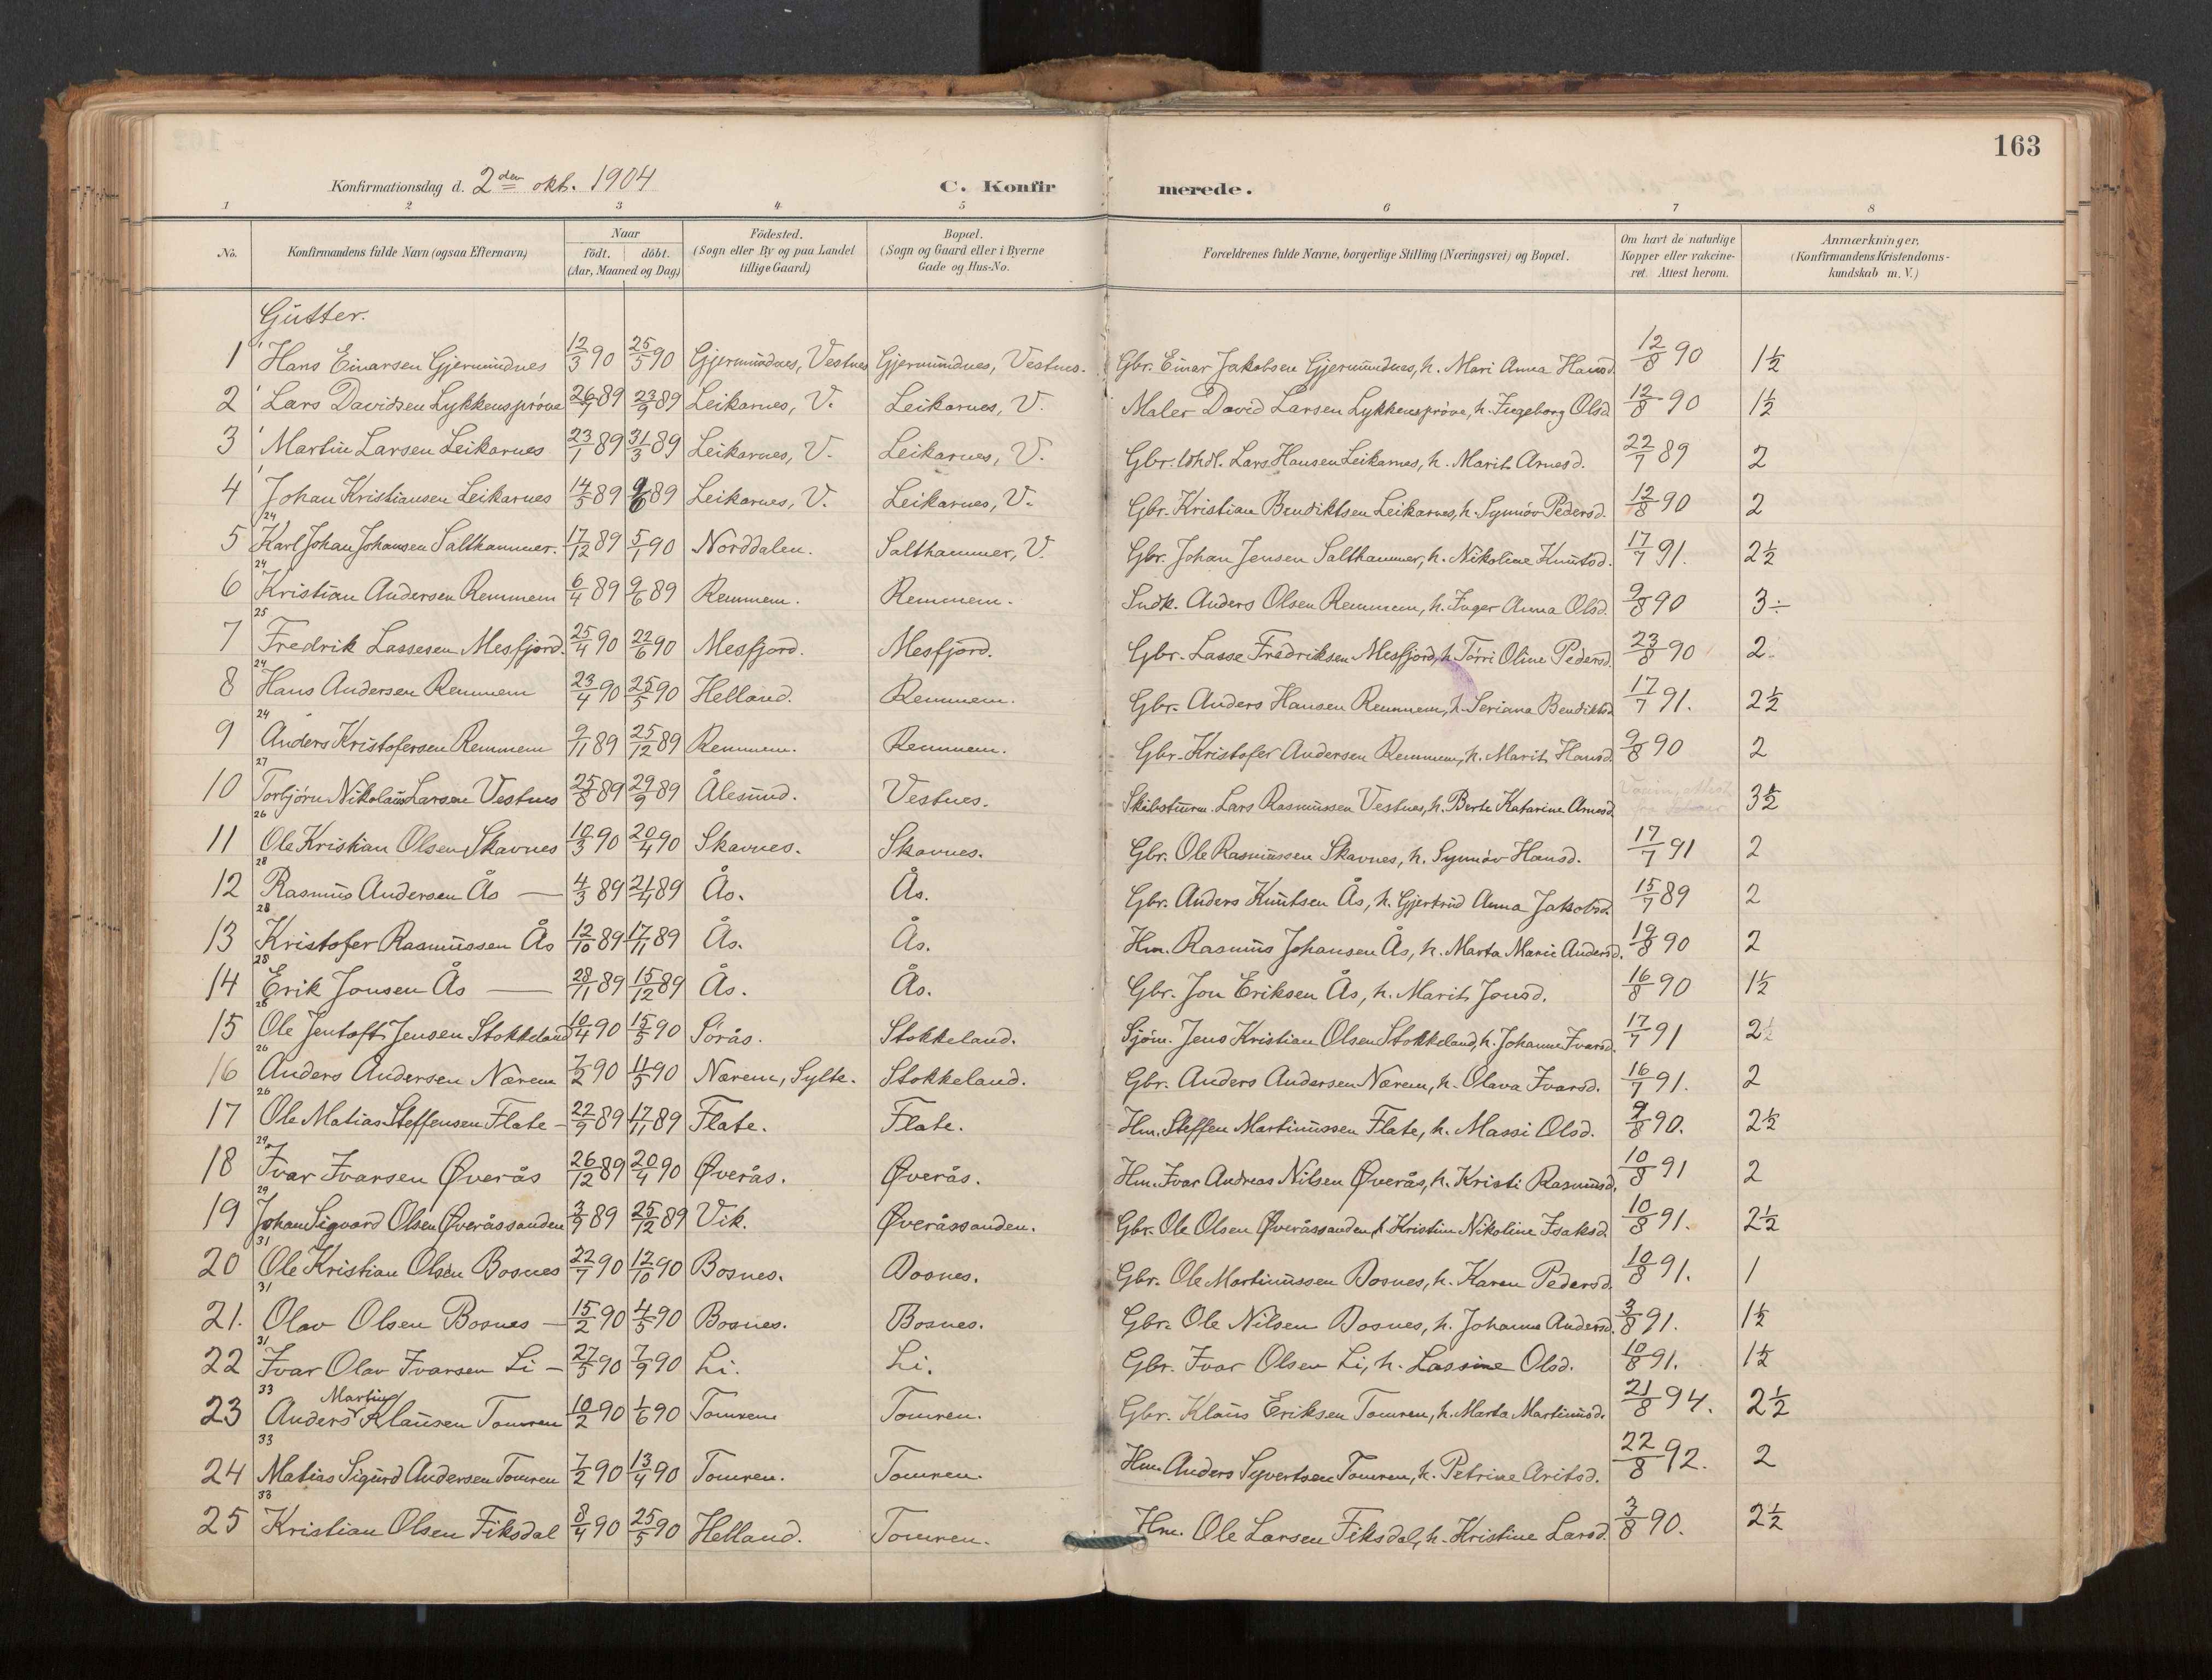 163
Konfirmationsdag d. 2den okt. 1904 C. Konfirmerede.
1 2 3 4 5 6 7 8
No. Konfirmandens fulde Navn (ogsaa Efternavn) Naar født. døbt. (Aar, Maaned og Dag) Födested. (Sogn eller By og paa Landet tillige Gaard) Bopæl. (Sogn og Gaard eller i Byerne Gade og Hus-No. Forældrenes fulde Navne, borgerlige Stilling (Næringsvei) og Bopæl. Om havt de naturlige Kopper eller vakcineret. Attest herom. Anmærkninger. (Konfirmandens Kristendomskundskab m. V.)
Gutter.
1 Hans Einarsen Gjermundnes 12/3 90 25/5 90 Gjermundnes, Vestnes Gjermundnes, Vestnes. Gbr. Einar Jakobsen Gjermundnes, h. Mari Anna Hansd. 12/8 90 1½
2 Lars Davidsen Lykkensprøve 26/7 89 23/9 89 Leikarnes, V. Leikarnes, V. Maler David Larsen Lykkensprøve, h. Ingeborg Olsd. 12/8 90 1½
3 Martin Larsen Leikarnes 23/1 89 31/3 89 Leikarnes, V. Leikarnes, V. Gbr. Lars Hansen Leikarnes, h. Marit Arnesd. 22/7 89 2
4 Johan Kristiansen Leikarnes 14/5 89 9/6 89 Leikarnes, V. Leikarnes, V. Gbr. Kristian Bendiktsen Leikarnes, h. Synnøv Pedersd. 12/8 90 2
24
5 Karl Johan Johansen Salthammer. 17/12 89 5/1 90 Norddalen. Salthammer, V. Gbr. Johan Jensen Salthammer, h. Nikoline Knutsd. 17/7 91. 2½
24
6 Kristian Andersen Remmem 6/4 89 9/6 89 Remmem. Remmem. Indk. Anders Olsen Remmem, h. Inger Anna Olsd. 9/8 90 3÷
25
7 Fredrik Lassesen Mesfjord. 25/4 90 22/6 90 Mesfjord. Mesfjord. Gbr. Lasse Fredriksen Mesfjord, h. Tørri Oline Pedersd. 23/8 90 2.
24
8 Hans Andersen Remmem 23/4 90 25/5 90 Helland. Remmem. Gbr. Anders Hansen Remmem, h. Seriana Bendiktsd 17/7 91. 2½
24
9 Anders Kristofersen Remmem 9/11 89 25/12 89 Remmem. Remmem. Gbr. Kristofer Andersen Remmem, h. Marit Hansd. 9/8 90 2
27
10 Torbjørn Nikolaus Larsen Vestnes 25/8 89 29/9 89 Ålesund. Vestnes. Skibstüm. Lars Rasmussen Vestnes, h. Berte Katarine Arnesd. 3½
26
11 Ole Kristian Olsen Skavnes 10/3 90 20/4 90 Skavnes. Skavnes. Gbr. Ole Rasmussen Skavnes, h. Synnøv Hansd. 17/7 91 2
28
12 Rasmus Andersen Ås — 4/3 89 21/4 89 Ås. Ås. Gbr. Anders Knutsen Ås, h. Gjertrud Anna Jakobsd. 15/7 89 2
28
13 Kristofer Rasmussen Ås 12/10 89 17/11 89 Ås. Ås. Hm. Rasmus Johansen Ås, h. Marta Marie Andersd. 19/8 90 2
28
14 Erik Jonsen Ås — 28/11 89 15/12 89 Ås. Ås. Gbr. Jon Eriksen Ås, h. Marit Jonsd. 16/8 90 1½
26
15 Ole Jentoft Jensen Stokkeland 10/4 90 15/5 90 Sørås. Stokkeland. Sjøm. Jens Kristian Olsen Stokkeland, h. Johanne Ivarsd. 17/7 91 2½
26
16 Anders Andersen Nærem 7/2 90 11/5 90 Nærem, Sylte. Stokkeland. Gbr. Anders Andersen Nærem, h. Olava Ivarsd. 16/7 91. 2
26
17 Ole Matias Steffensen Flate - 22/9 89 17/11 89 Flate. Flate. Hm. Steffen Martinussen Flate, h. Massi Olsd. 9/8 90. 2½
29
18 Ivar Ivarsen Øverås 26/12 89 20/4 90 Øverås. Øverås. Hm. Ivar Andreas Nilsen Øverås, h. Kristi Rasmusd. 10/8 91 2
29
19 Johan Sigvard Olsen Øveråssanden 3/9 89 25/12 89 Vik. Øveråssanden. Gbr. Ole Olsen Øveråssanden, h. Kristin Nikoline Isaksd. 10/8 91. 2½
31
20 Ole Kristian Olsen Bosnes 22/7 90 12/10 90 Bosnes. Bosnes. Gbr. Ole Martinussen Bosnes, h. Karen Pedersd. 10/8 91. 1
31
21. Olav Olsen Bosnes — 15/2 90 4/5 90 Bosnes. Bosnes. Gbr. Ole Nilsen Bosnes, h. Johanne Andersd. 3/8 91. 1½
31
22 Ivar Olav Ivarsen Li - 27/5 90 7/9 90 Li. Li. Gbr. Ivar Olsen Li, h. Lassine Olsd. 10/8 91. 1½
33 Martin
23 Anders Klausen Tomren 10/2 90 1/6 90 Tomren Tomren. Gbr. Klaus Eriksen Tomren, h. Marta Martinusd. 21/8 94. 2½
33
24 Matias Sigurd Andersen Tomren 7/2 90 13/4 90 Tomren. Tomren. Hm. Anders Syvertsen Tomren, h. Petrine Aritsd. 22/8 92. 2
33
25 Kristian Olsen Fiksdal 8/4 90 25/5 90 Helland. Tomren. Hm. Ole Larsen Fiksdal, h. Kristine Larsd. 3/8 90. 2½